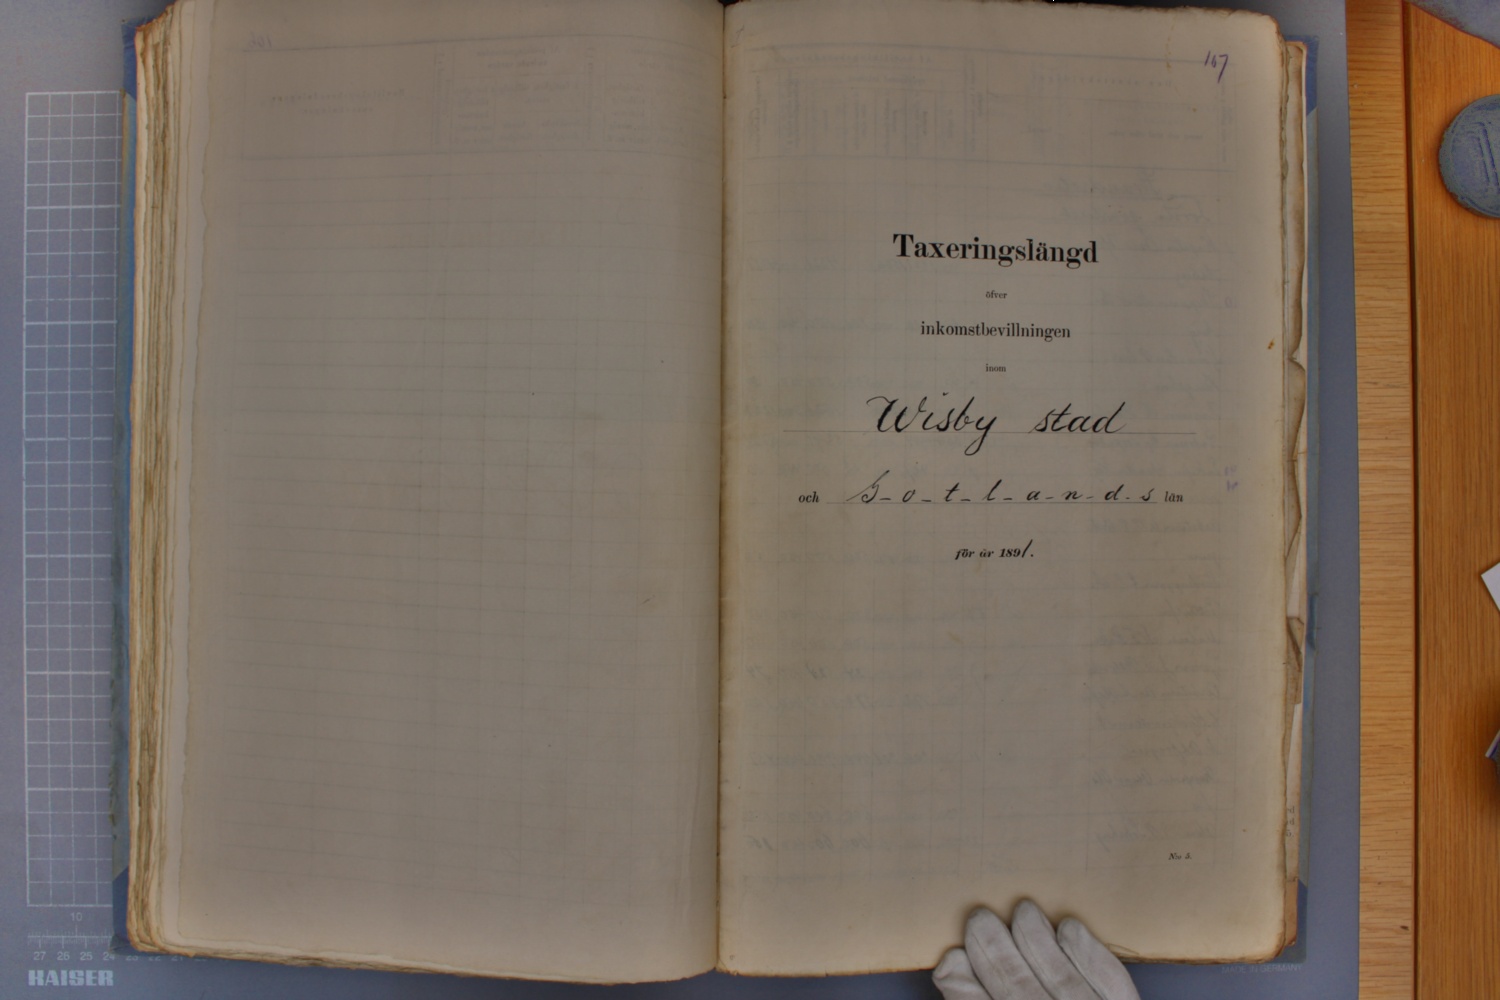 167
Taxeringslängd
öfver
inkomstbevillningen
inom
Wisby stad
och G-o-t-l-a-n-d-s län
för år 1891.
N:o 5.
10
27 26 25 24 23 22 21
KAISER
MADE IN GERMANY